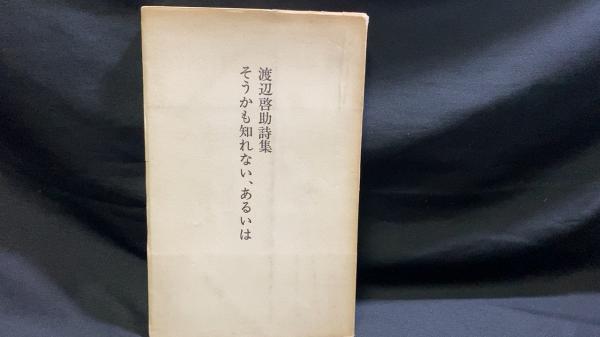 渡辺啓助詩集
そうかも知れない、あるいは